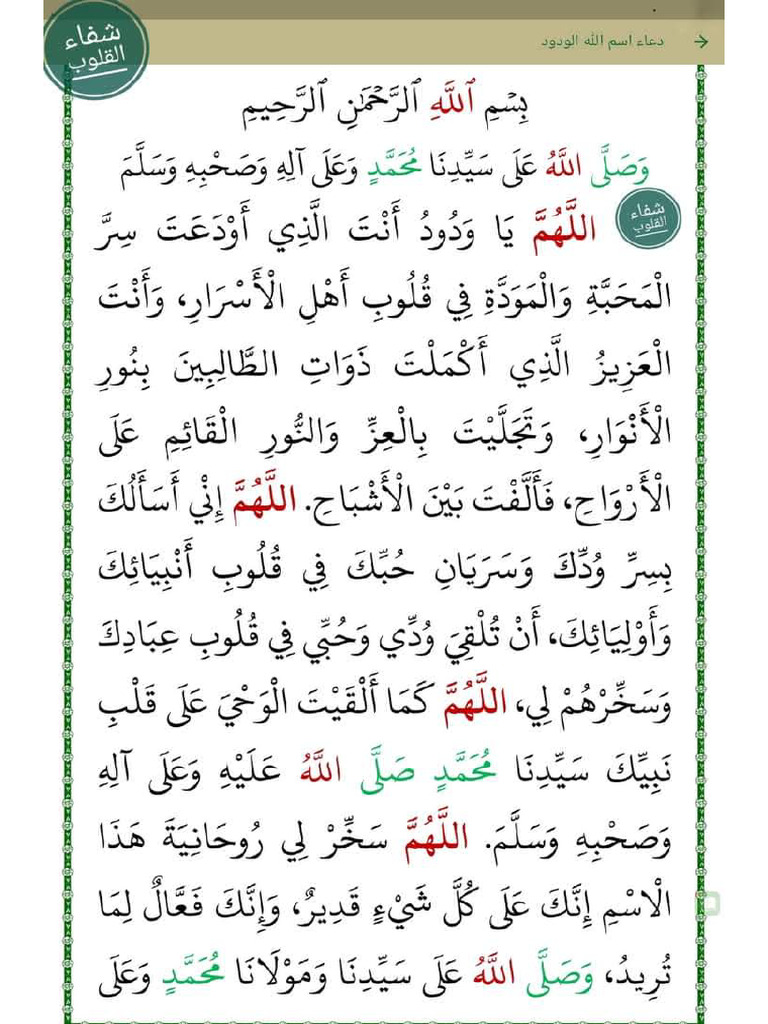 شفاء
القلوب
دعاء اسم الله الودود
بِسْمِ ٱللَّهِ ٱلرَّحْمَٰنِ ٱلرَّحِيمِ
وَصَلَّى اللَّهُ عَلَى سَيِّدِنَا مُحَمَّدٍ وَعَلَى آلِهِ وَصَحْبِهِ وَسَلَّمَ
شفاء
القلوب
اللَّهُمَّ يَا وَدُودُ أَنْتَ الَّذِي أَوْدَعَتَ سِرَّ
الْمَحَبَّةِ وَالْمَوَدَّةِ فِي قُلُوبِ أَهْلِ الْأَسْرَارِ، وَأَنْتَ
الْعَزِيزُ الَّذِي أَكْمَلْتَ ذَوَاتِ الطَّالِبِينَ بِنُورِ
الْأَنْوَارِ، وَتَجَلَّيْتَ بِالْعِزِّ وَالنُّورِ الْقَائِمِ عَلَى
الْأَرْوَاحِ، فَأَلَّفْتَ بَيْنَ الْأَشْبَاحِ. اللَّهُمَّ إِنْي أَسَأَلُكَ
بِسِرِّ وُدِّكَ وَسَرَيَانِ حُبِّكَ فِي قُلُوبِ أَنْبِيَائِكَ
وَأَوْلِيَائِكَ، أَنْ تُلْقِيَ وُدِّي وَحُبِّي فِي قُلُوبِ عِبَادِكَ
وَسَخِّرْهُمْ لِي، اللَّهُمَّ كَمَا أَلْقَيْتَ الْوَحْيَ عَلَى قَلْبِ
نَبِيِّكَ سَيِّدِنَا مُحَمَّدٍ صَلَّى اللَّهُ عَلَيْهِ وَعَلَى آلِهِ
وَصَحْبِهِ وَسَلَّمَ. اللَّهُمَّ سَخِّرْ لِي رُوحَانِيَةَ هَذَا
الْاسْمِ إِنَّكَ عَلَى كُلَّ شَيْءٍ قَدِيرٌ، وَإِنَّكَ فَعَّالٌ لِمَا
تُرِيدُ، وَصَلَّى اللَّهُ عَلَى سَيِّدِنَا وَمَوْلَانَا مُحَمَّدٍ وَعَلَى